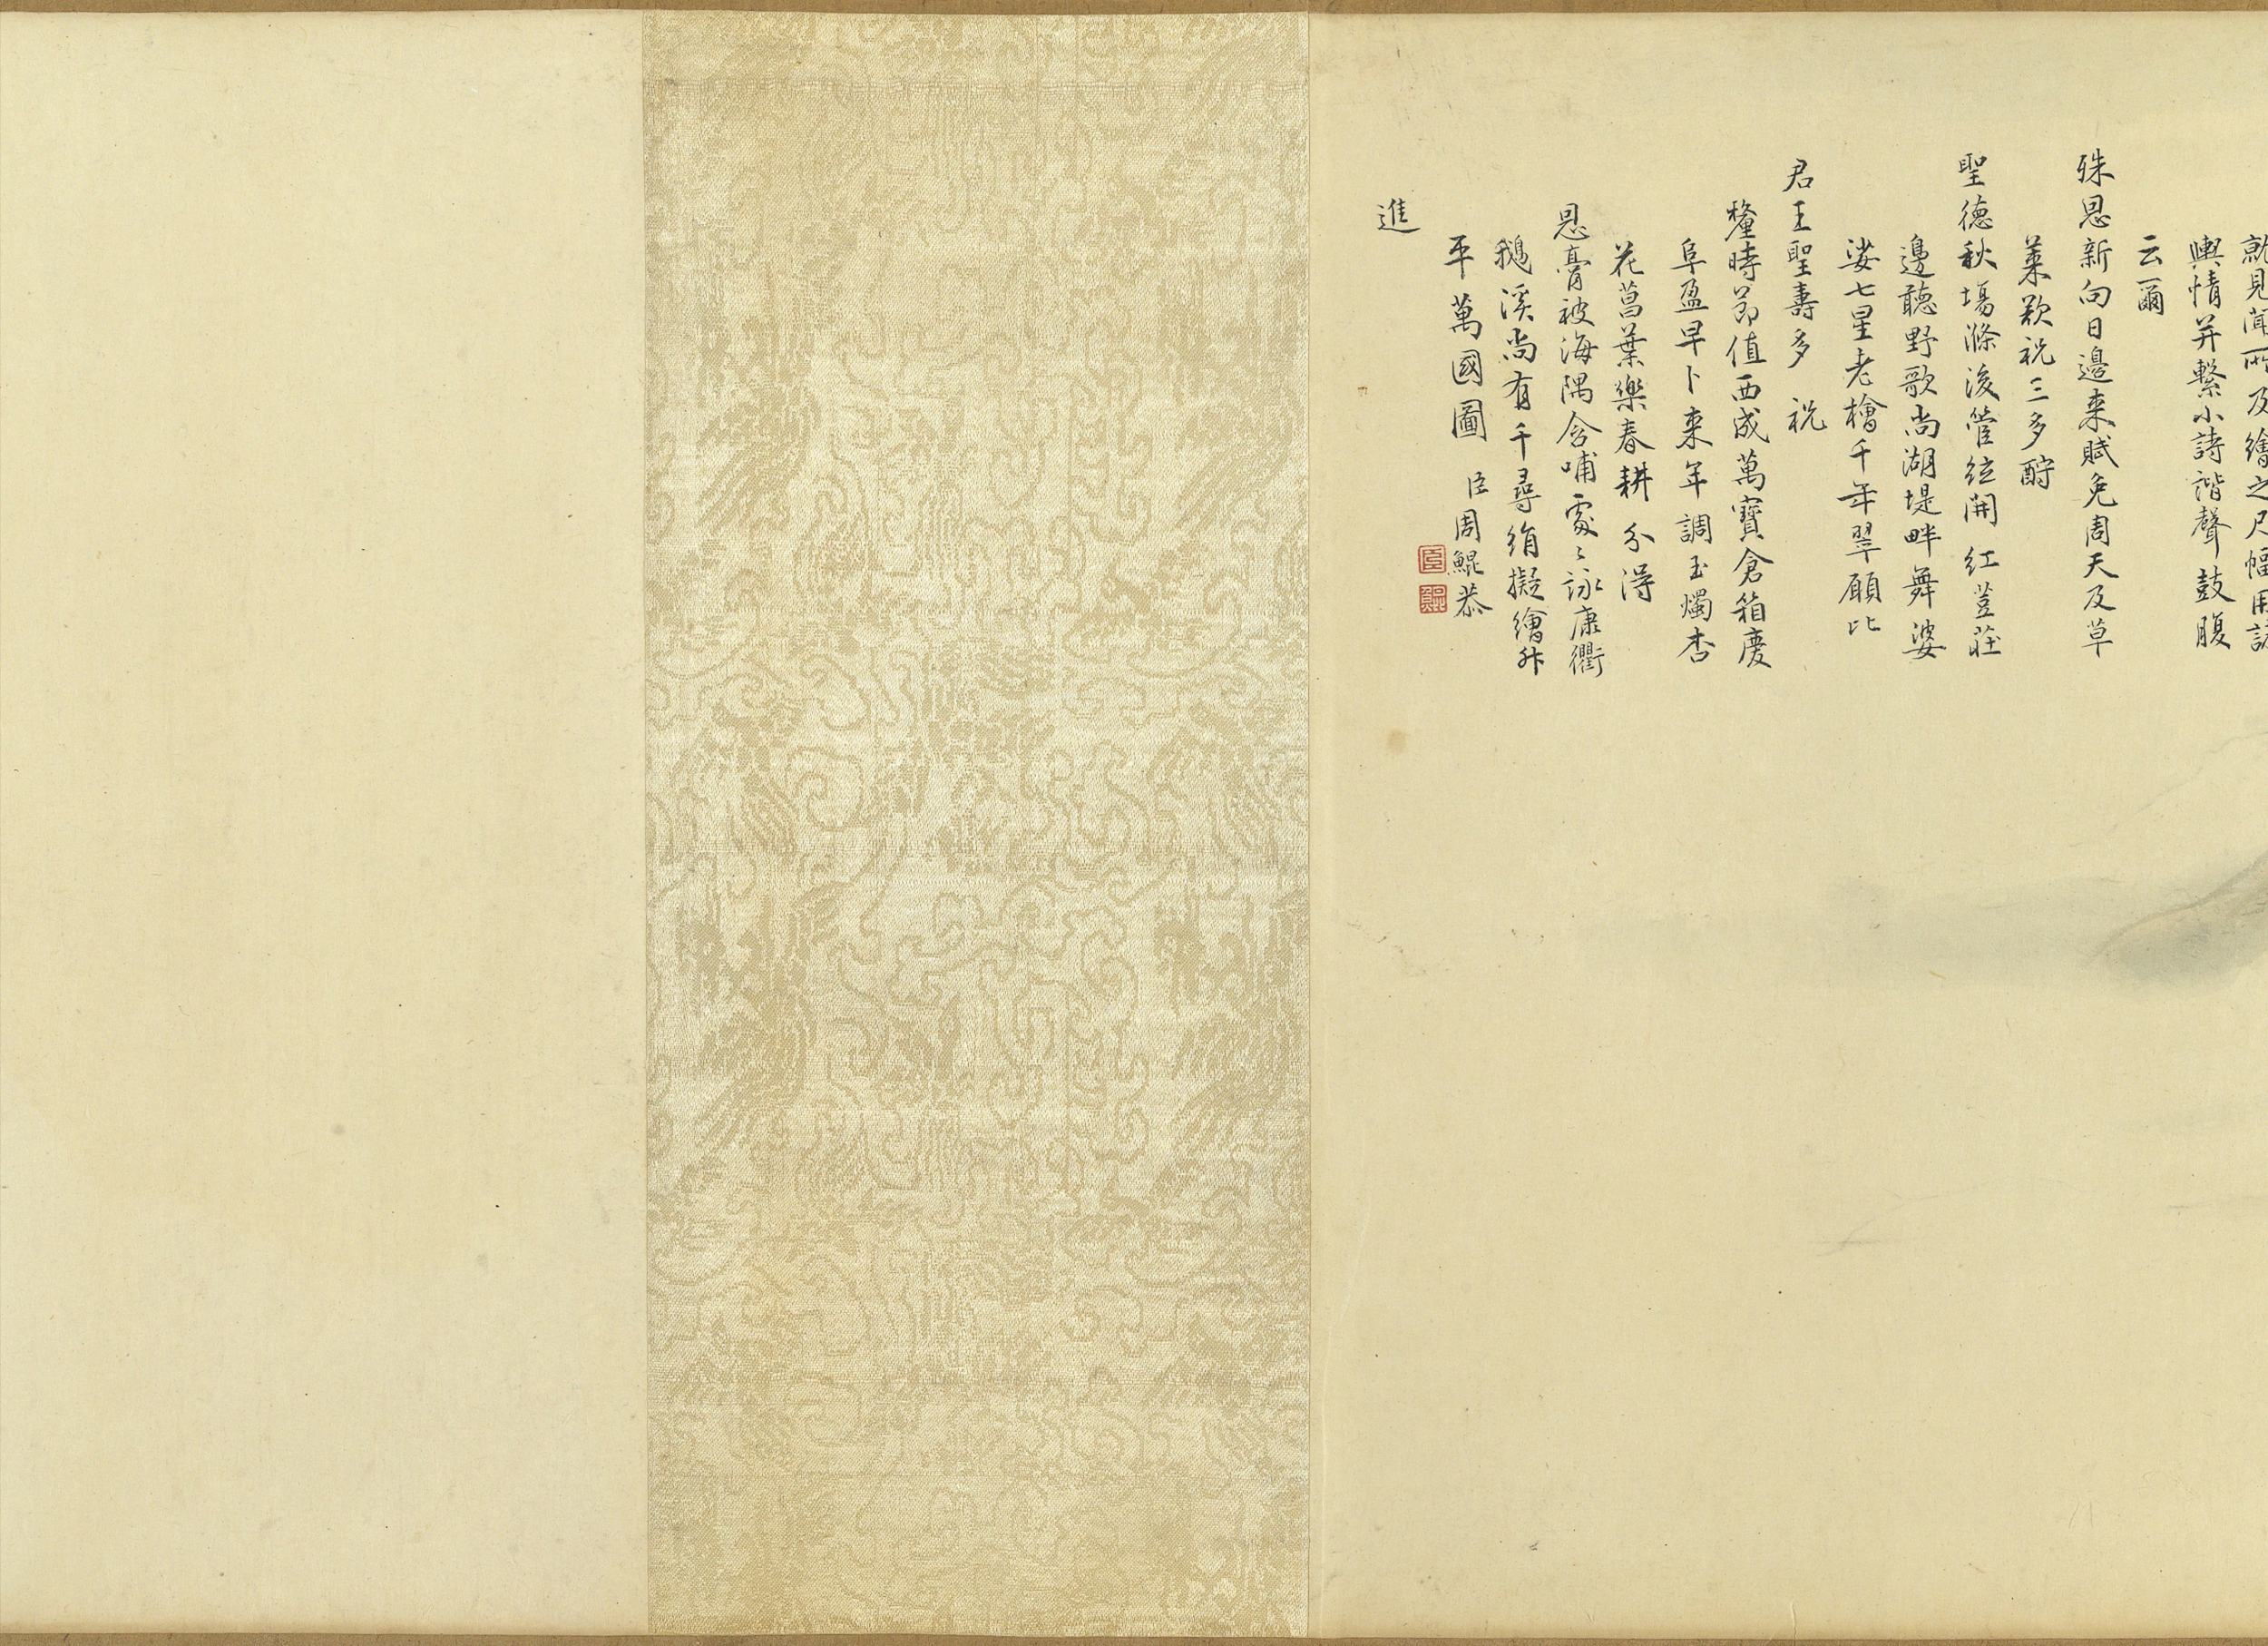 就見聞所及繪之尺幅用誌
輿情并繫小詩諧聲鼓腹
云爾
殊恩新向日邊来賦免周天及草
萊歡祝三多酹
聖德秋場滌後管絃開 紅荳莊
邊聽野歌尚湖堤畔舞婆
娑七星老檜千年翠願比
君王聖壽多 祝
釐時節值西成萬寶倉箱慶
阜盈早卜来年調玉燭杏
花菖葉樂春耕 分得
恩膏被海隅含哺處〻詠康衢
鵝溪尚有千尋絹擬繪昇
平萬國圖 臣周鯤恭
進
臣
鯤